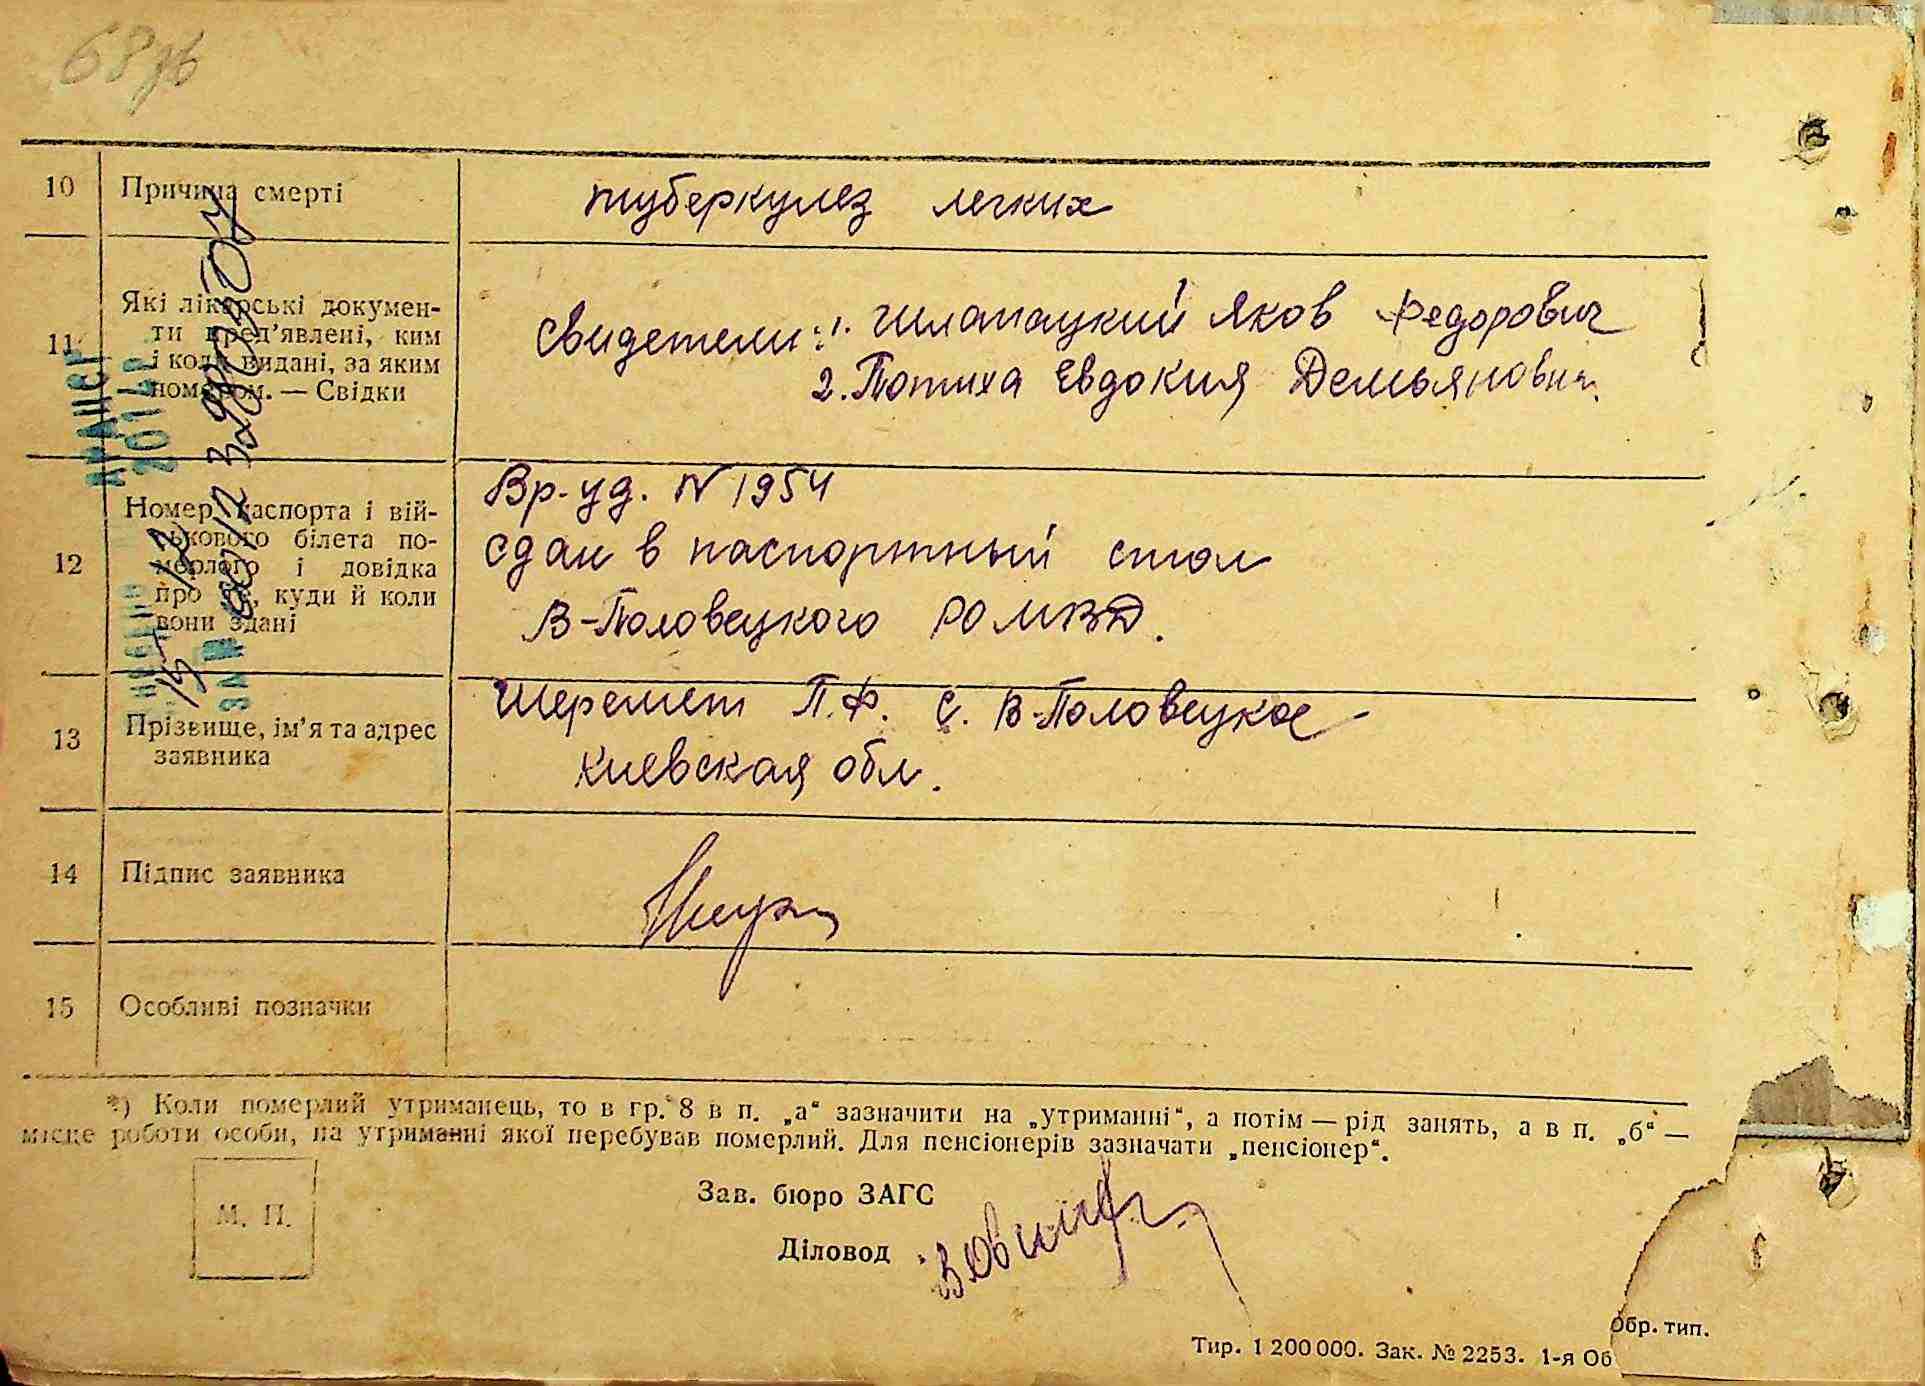 10 Причина смерті туберкулез легких
11 Які лікарські докумен-
ти пред'явлені, ким
і коли видані, за яким
номером. — Свідки
свидетели: 1. Шлапацкий Яков Федорович
2. Потиха Евдокия Демьяновна.
12 Номер паспорта і вій-
ськового білета по-
мерлого і довідка
про те, куди й коли
вони здані
Вр-уд. N 1954
сдан в паспортный стол
В-Половецкого РОМВД.
13 Прізвище, ім'я та адрес
заявника
Шеремет П.Ф. с. В-Половецкое
Киевская обл.
14 Підпис заявника
15 Особливі позначки
*) Коли померлий утриманець, то в гр. 8 в п. „а“ зазначити на „утриманні“, а потім — рід занять, а в п. „б“ —
місце роботи особи, на утриманні якої перебував померлий. Для пенсіонерів зазначати „пенсіонер“.
М. П.
Зав. бюро ЗАГС
Діловод
Обр. тип.
Тир. 1 200 000. Зак. № 2253. 1-я Об